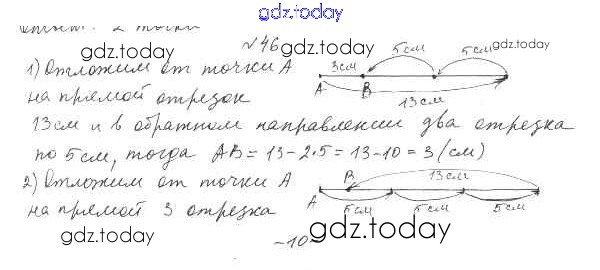 gdz.today
2 точки
gdz.today №46 gdz.today gdz.today
1) Отложим от точки А
3см 5см 5см
A B
13см
на прямой отрезок
13см и в обратном направлении два отрезка
по 5см, тогда AB = 13 - 2·5 = 13 - 10 = 3 (см)
2) Отложим от точки А
B 13см
A 5см 5см 5см
на прямой 3 отрезка
gdz.today gdz.today
~10~